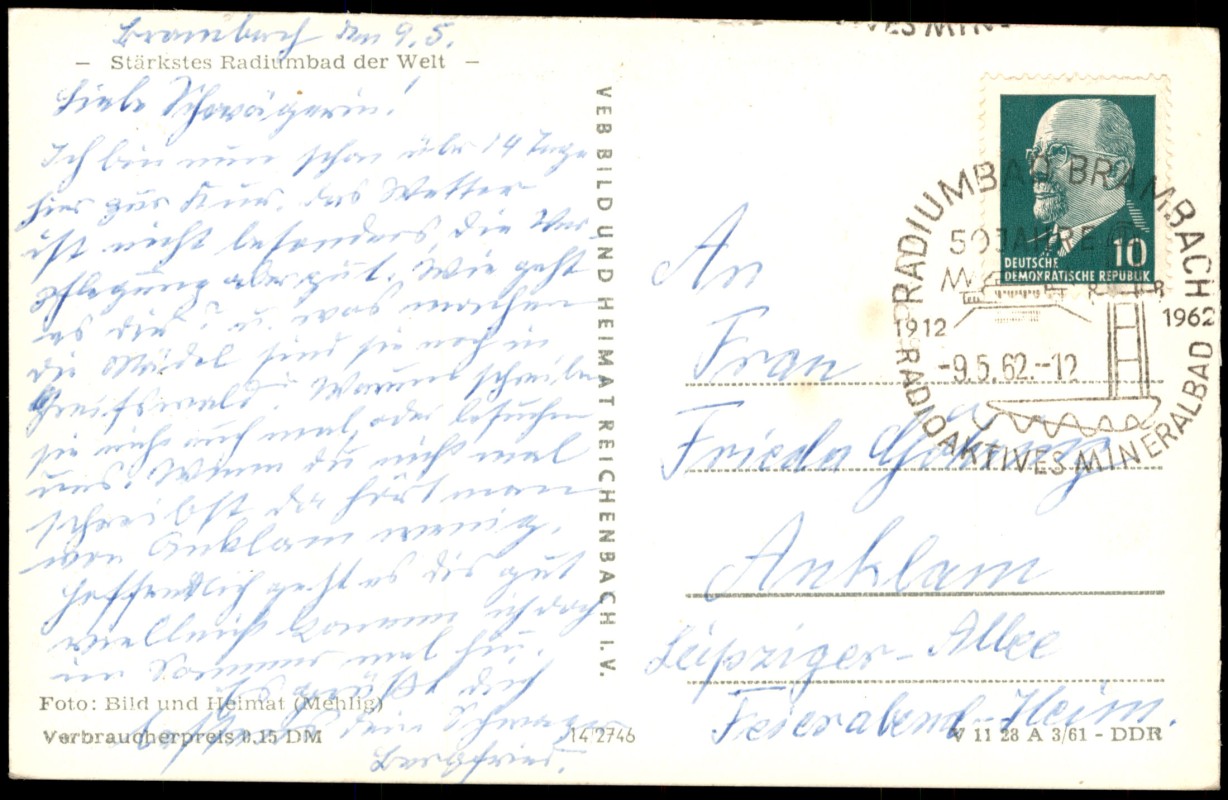 Brambach den 9.5.
– Stärkstes Radiumbad der Welt –
Liebe Schwägerin!
Ich bin nun schon über 14 Tage
hier zur Kur. das Wetter
ist nicht besonders, die Ver-
pflegung aber gut. Wie geht
es dir? u. was machen
die Mädel sind sie noch in
Greifswald. Warum schreiben
sie nicht auch mal, oder besuchen
uns. Wenn du nicht mal
schreibst da hört man
von Anklam wenig.
Hoffentlich geht es dir gut
vielleicht komme ich doch
im Sommer mal hin.
Es grüßt dich
dein Schwager
Foto: Bild und Heimat (Mehlig)
Verbraucherpreis 0,15 DM
14/2746
VEB BILD UND HEIMAT REICHENBACH I. V.
VES MIN
DEUTSCHE
DEMOKRATISCHE REPUBLIK
10
RADIUMBAD BRAMBACH
50 JAHRE
1912
1962
-9.5.62.--12
RADIOAKTIVES MINERALBAD
An
Frau
Frieda
Anklam
Leipziger-Allee
Feierabend-Heim.
V 11 28 A 3/61 - DDR